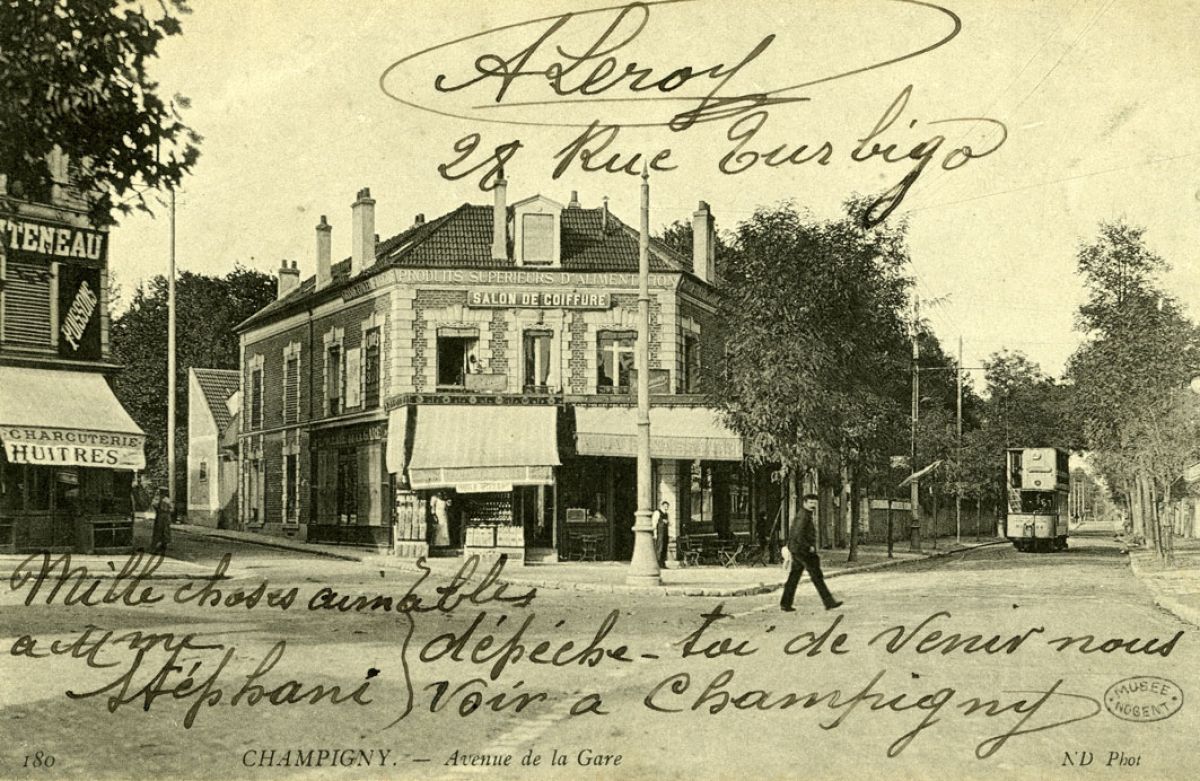 A Leroy
28 Rue Turbigo
TENEAU
PRODUITS SUPERIEURS D'ALIMENTATION
SALON DE COIFFURE
CHARCUTERIE
HUITRES
Mille choses aimables
a Mme
Stéphani
dépéche-toi de venir nous
voir a Champigny
MUSÉE
NOGENT
180 CHAMPIGNY. — Avenue de la Gare ND Phot